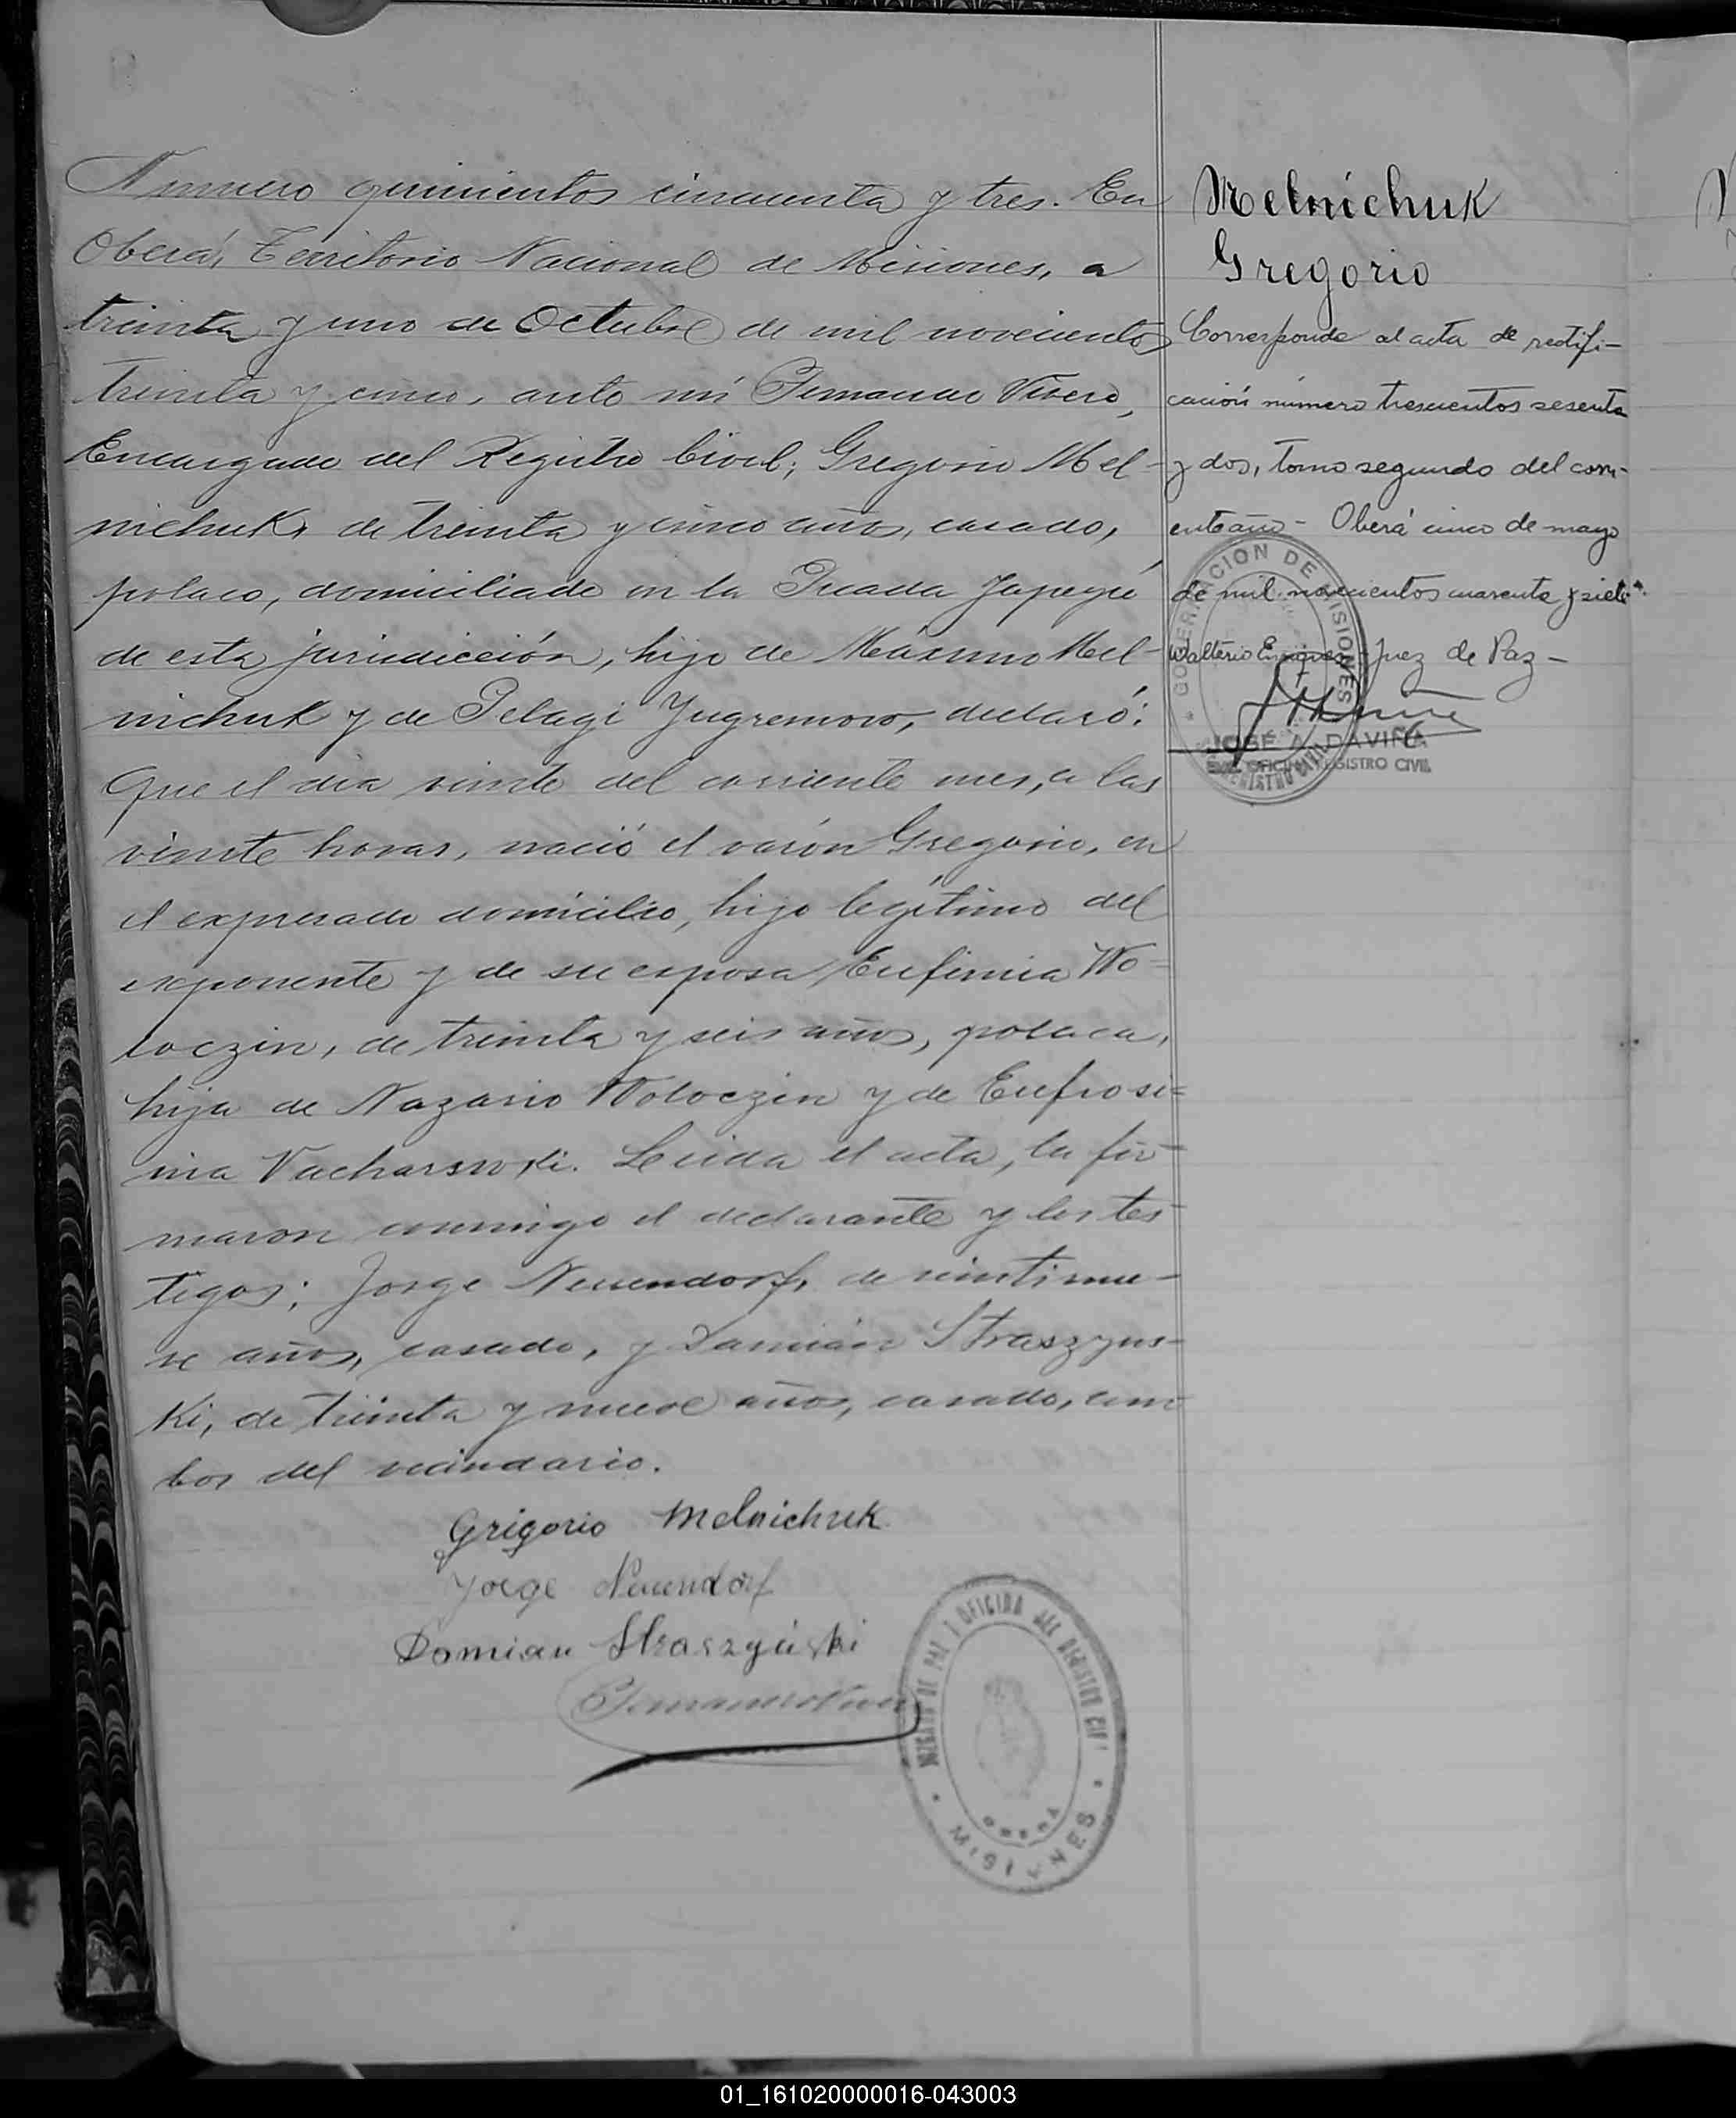 Numero quinientos cincuenta y tres. En
Oberá, Territorio Nacional de Misiones, a
treinta y uno de Octubre de mil novecientos
treinta y cinco, ante mi Fernando Vivero,
Encargado del Registro Civil; Gregorio Mel-
nichuk, de treinta y cinco años, casado,
polaco, domiciliado en la Picada Yapeyú
de esta jurisdicción, hijo de Máximo Mel-
nichuk y de Pelagi Yugremow, declaró:
Que el dia veinte del corriente mes, a las
veinte horas, nació el varón Gregorio, en
el expresado domicilio, hijo legítimo del
exponente y de su esposa Eufimia Wo-
loczin, de treinta y seis años, polaca,
hija de Nazario Woloczin y de Eufrosi=
nia Vacharswski. Leida el acta, la fir-
maron conmigo el declarante y los tes-
tigos; Jorge Neuendorf, de veintinue-
ve años, casado, y Damián Straszyns-
ki, de treinta y nueve años, casado, am-
bos del vecindario.
Grigorio Melnichuk
Jorge Neuendorf
Damian Straszyński
Fernando Vivero
JUZGADO DE PAZ Y OFICINA DEL REGISTRO CIVIL
OBERÁ
MISIONES
Melnichuk
Gregorio
Corresponde al acta de rectifi-
cación número trescientos sesenta
y dos, tomo segundo del corri-
ente año - Oberá cinco de mayo
de mil novecientos cuarenta y siete
Walterio Enriquez Juez de Paz -
GOBERNACION DE MISIONES
REGISTRO CIVIL
JOSÉ A. DAVIÑA
OFICINA REGISTRO CIVIL
01_161020000016-043003